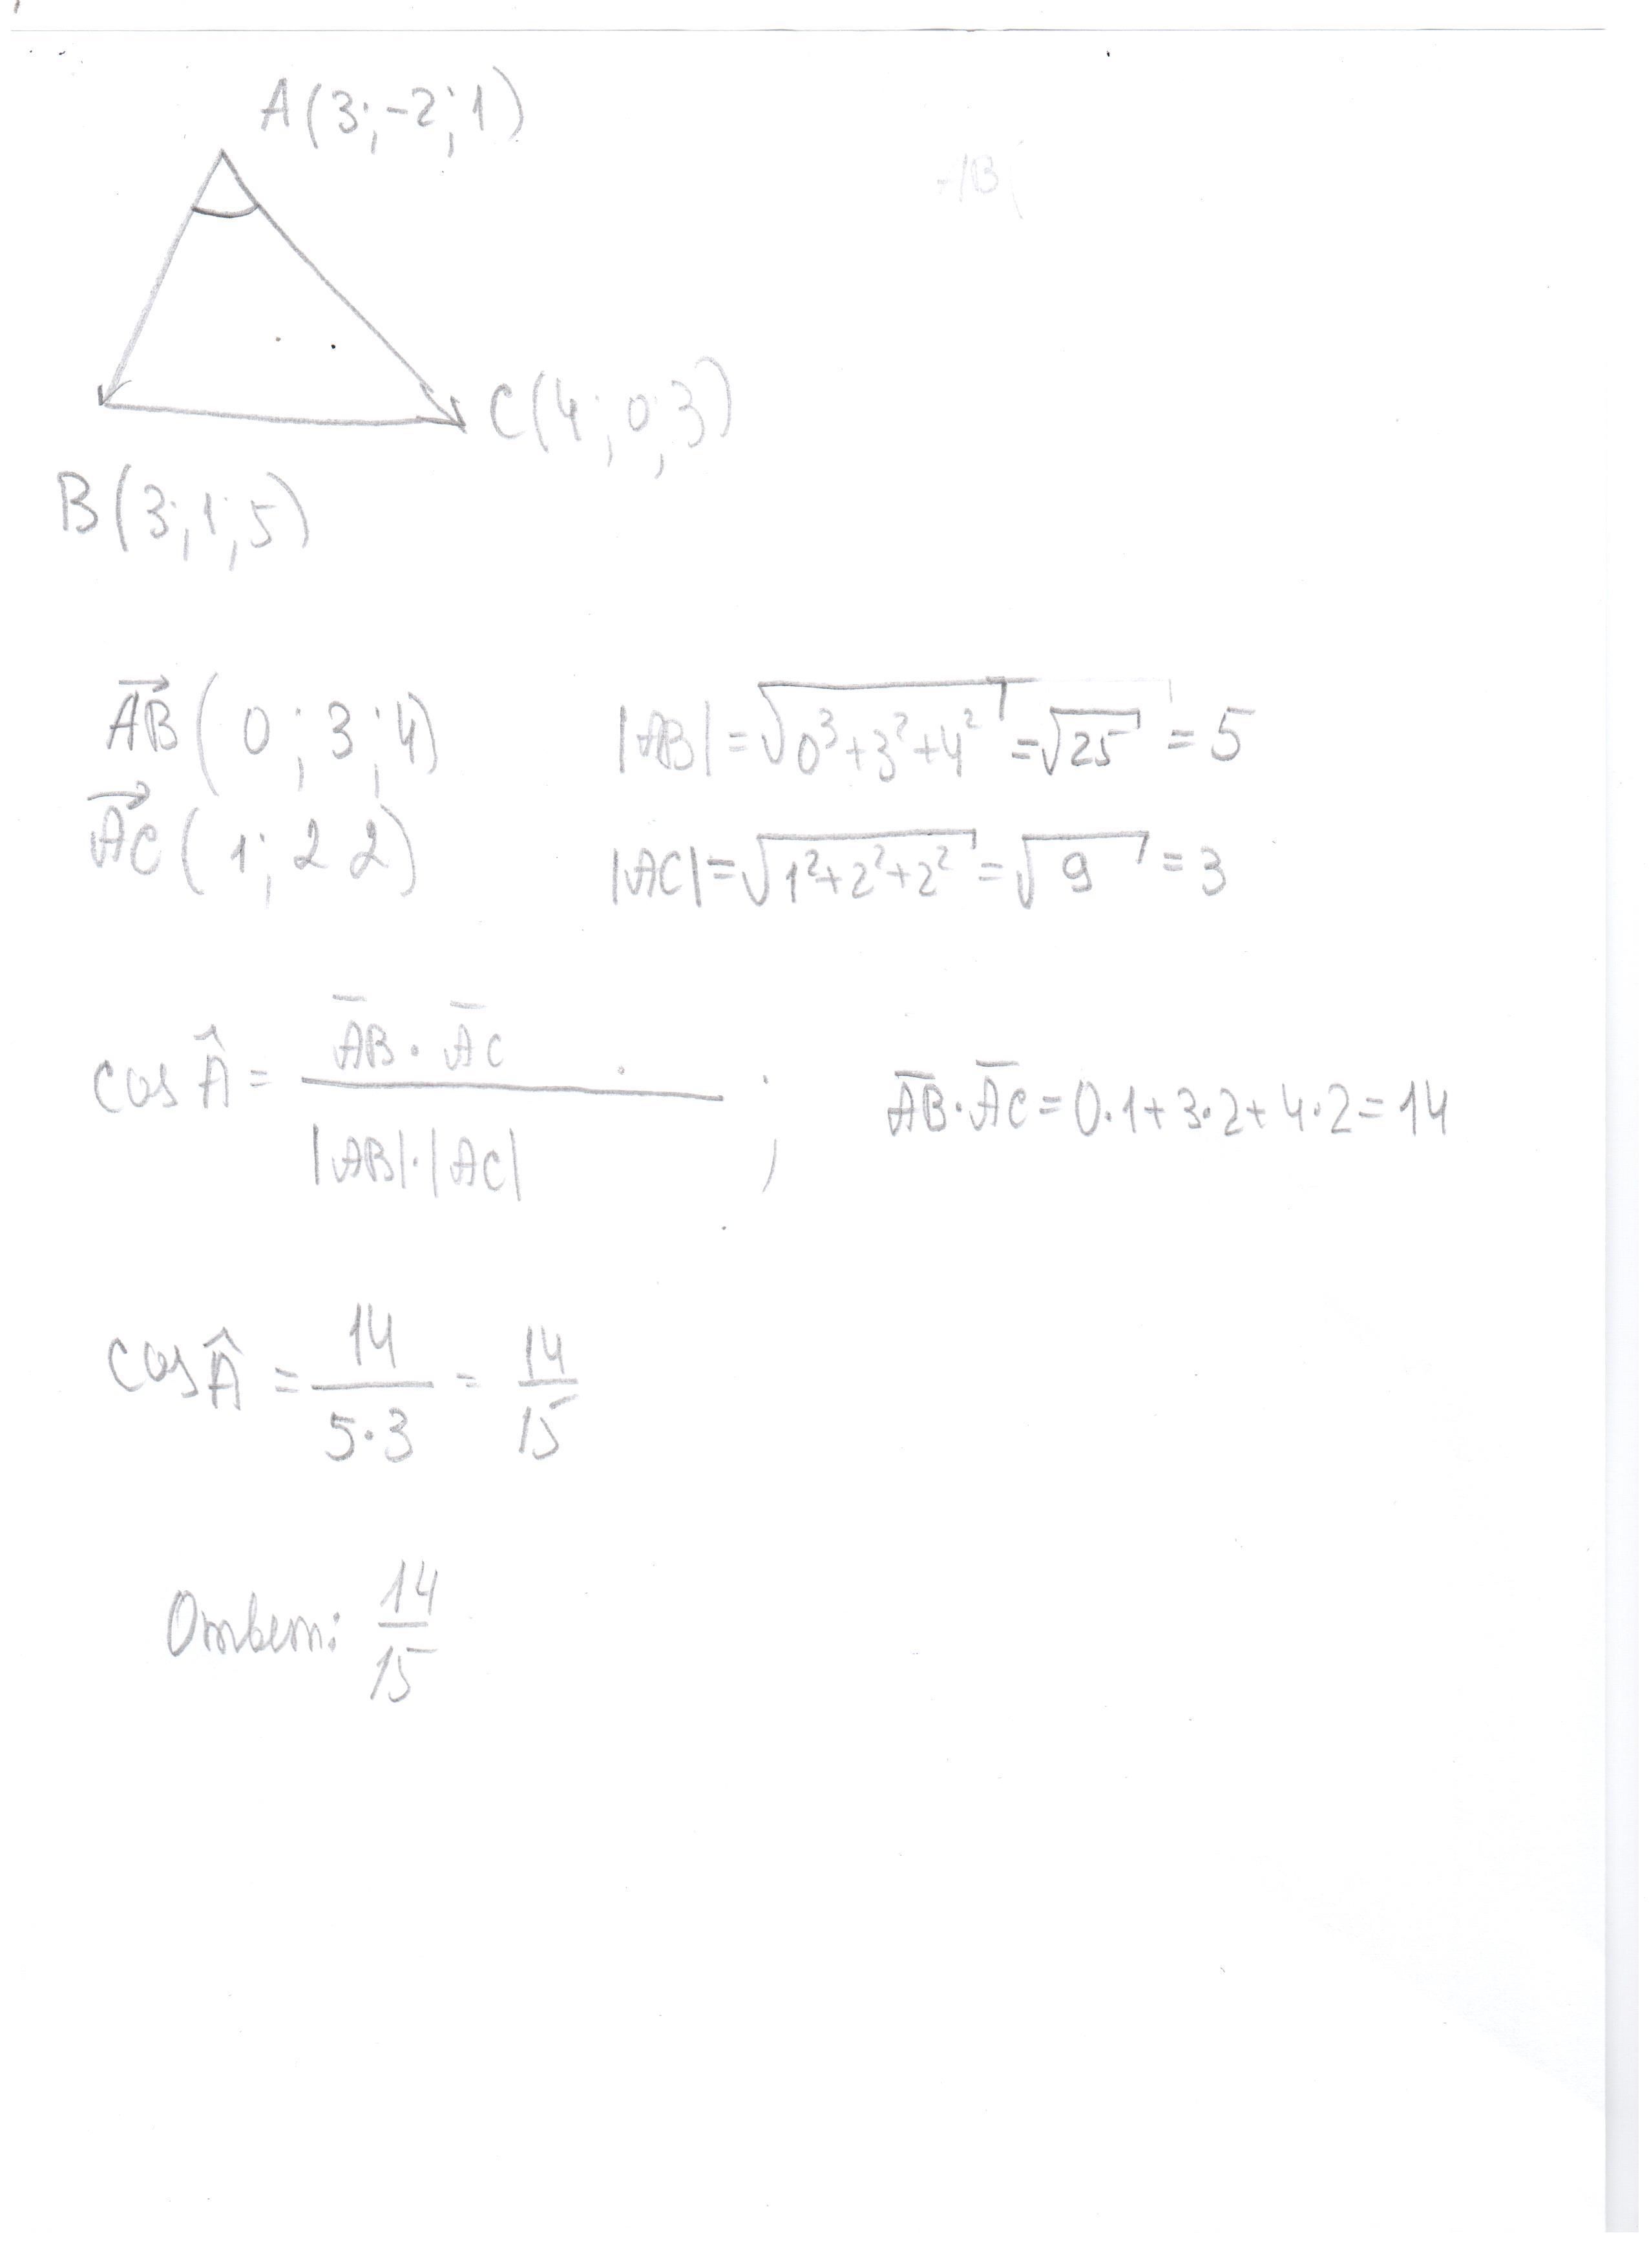 A(3;-2;1)
C(4;0;3)
B(3;1;5)
AB(0;3;4) |AB|=√0³+3²+4²=√25=5
AC(1;2 2) |AC|=√1²+2²+2²=√9=3
cos Â= AB·AC / |AB|·|AC| ; AB·AC=0·1+3·2+4·2=14
cos Â = 14 / 5·3 = 14/15
Ответ: 14/15